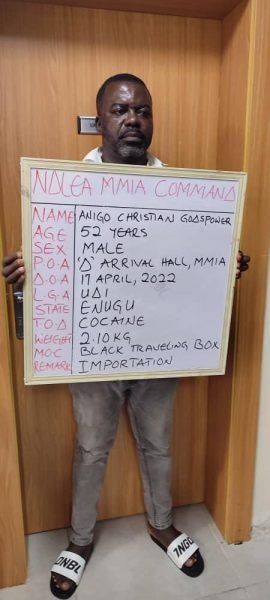 NDLEA MMIA COMMAND
NAME ANIGO CHRISTIAN GODSPOWER
AGE 52 YEARS
SEX MALE
P.O.A 'D' ARRIVAL HALL, MMIA
D.O.A 17 APRIL, 2022
L.G.A UDI
STATE ENUGU
T.O.D COCAINE
WEIGHT 2.10KG
M.O.C BLACK TRAVELING BOX
REMARK IMPORTATION